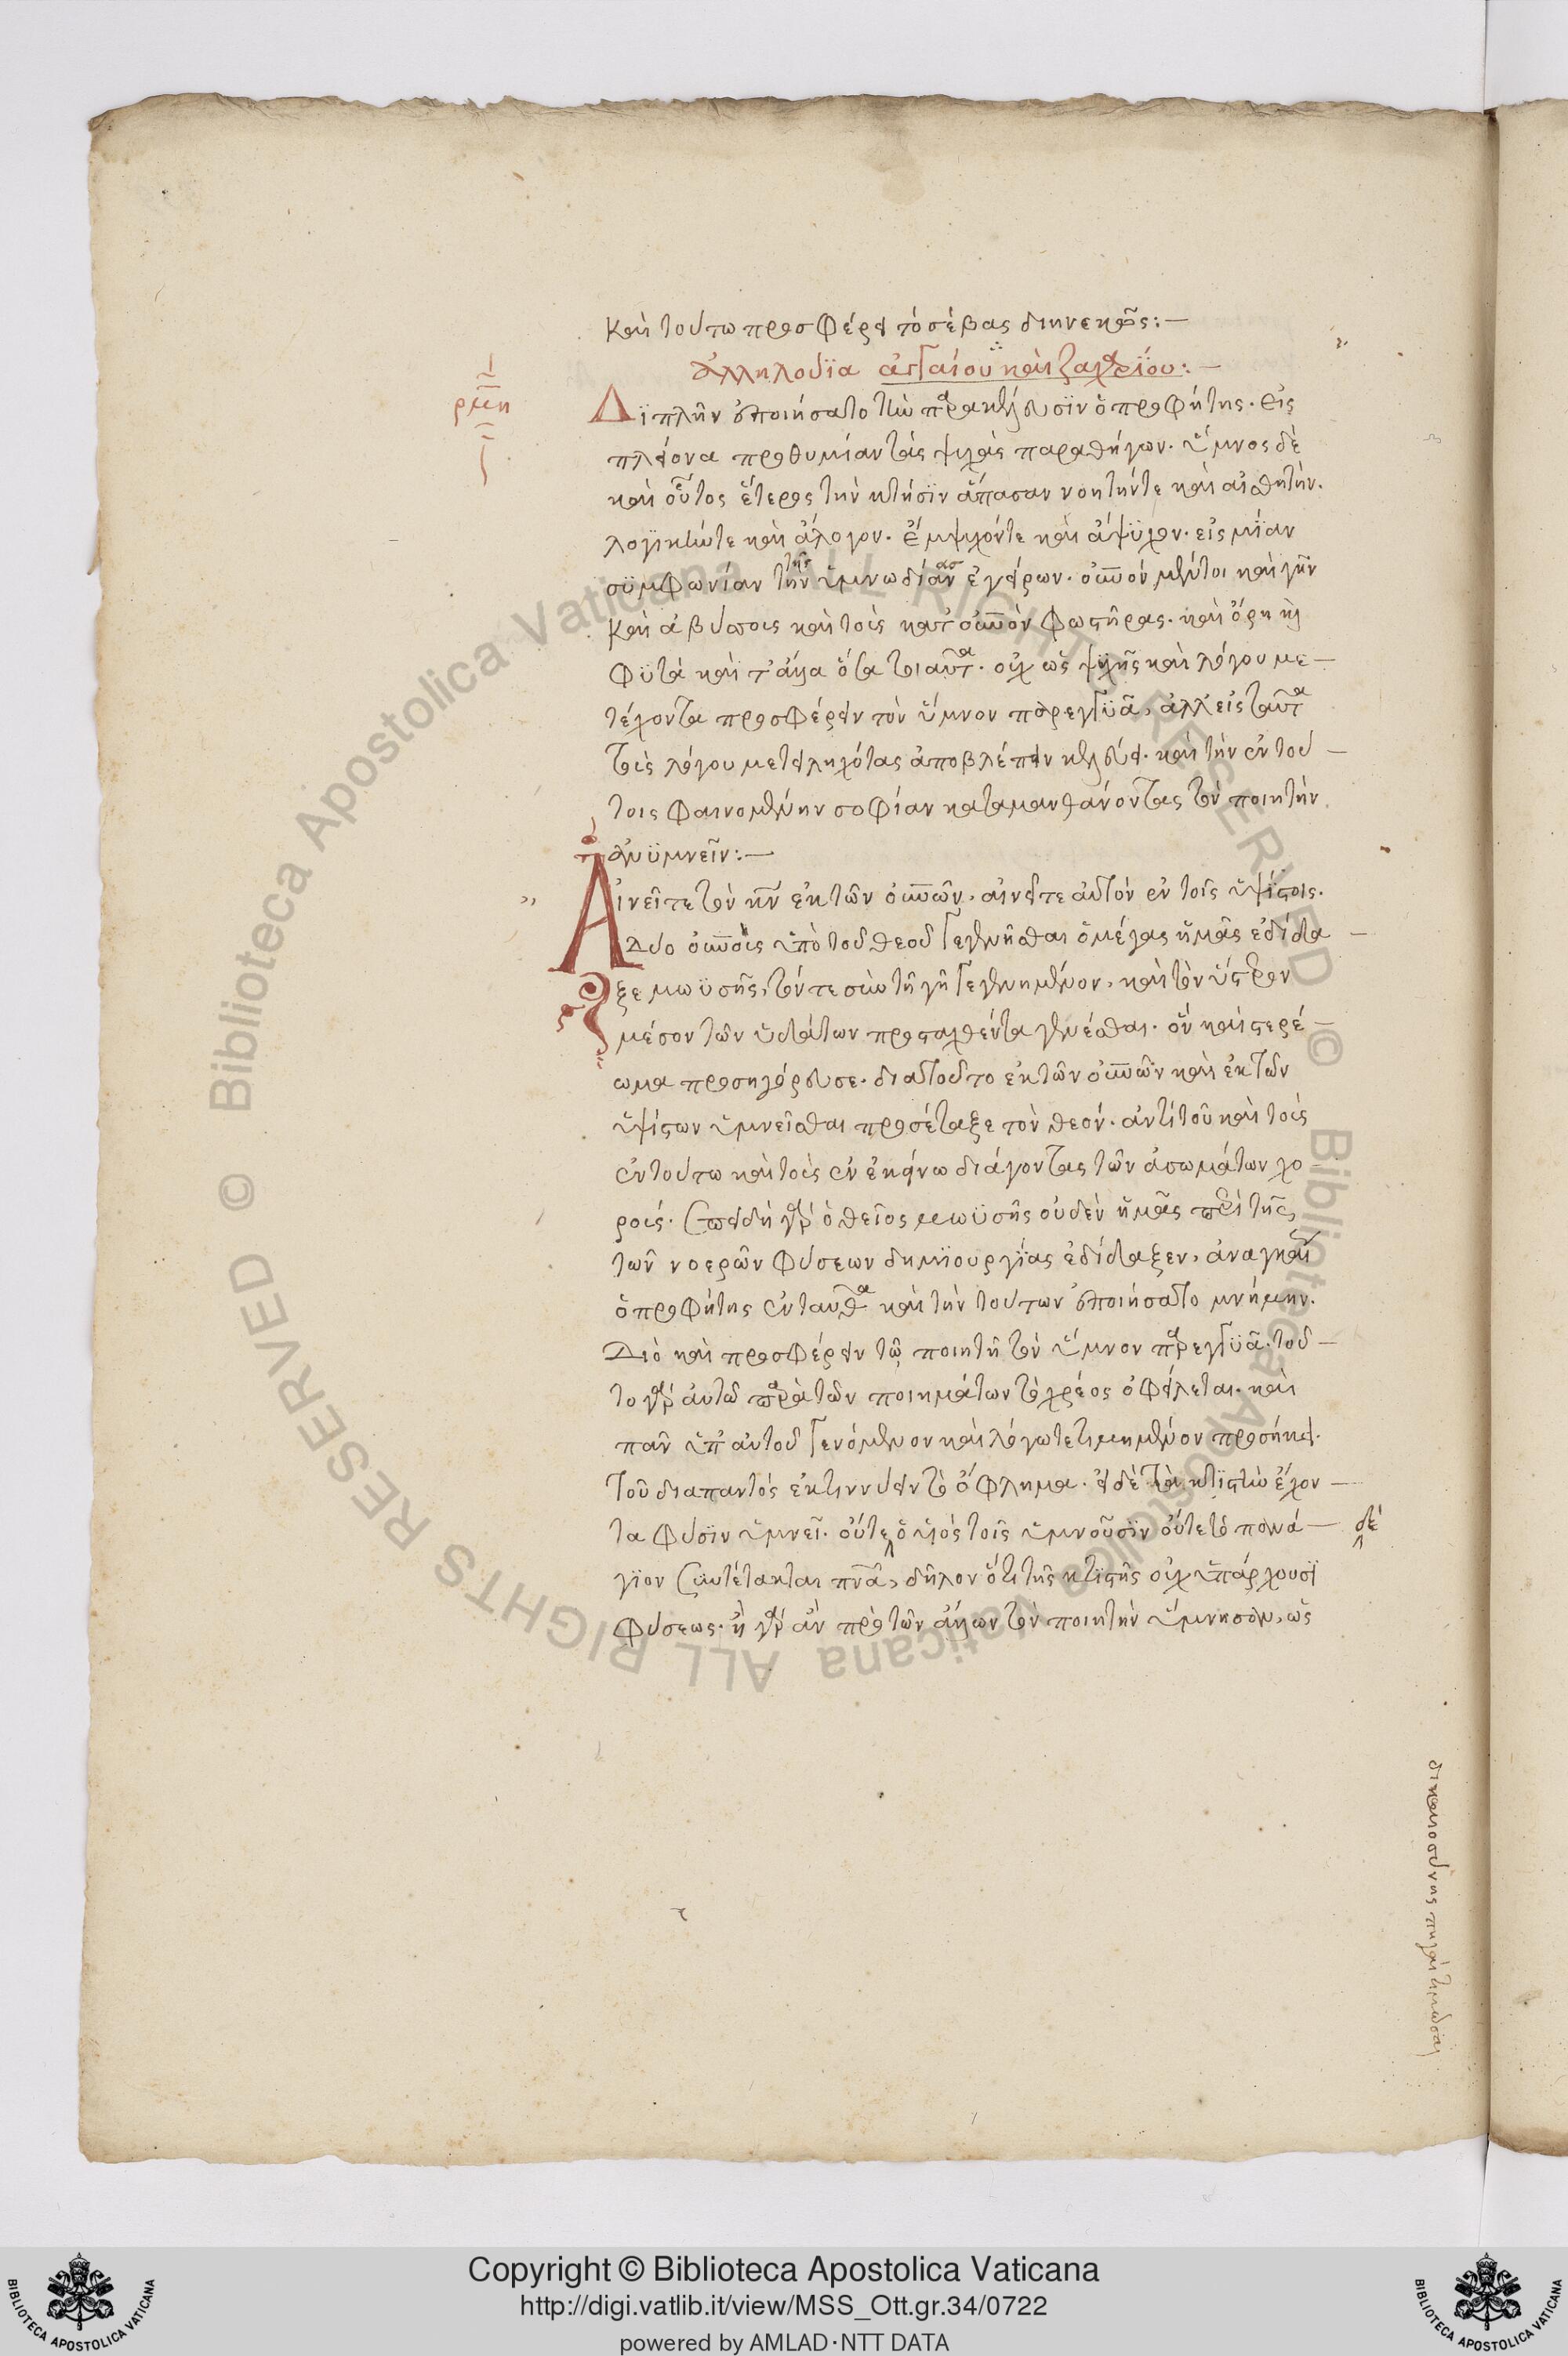 καὶ τούτω προσφέρει τὸ σέβας διηνεκῶς:—
ἀλληλούϊα ἀγγαίου καὶ ζαχαρίου:—
ρμη
Διπλῆν ἐποιήσατο τὴν παρακέλευσϊν ὁ προφήτης. εἰς
πλείονα προθυμίαν τὰς ψυχὰς παραθήγων. ὕμνος δὲ
καὶ οὗτος ἕτερος τὴν κτήσϊν ἅπασαν νοητήντε καὶ αἰσθητὴν.
λογϊκήντε καὶ ἄλογον. ἔμψυχόντε καὶ ἄψϋχον. εἰς μίαν
σϋμφωνίαν τὴν της ὑμνωδίαν ας ἐγείρων. οὐνόν μέντοι καὶ γῆν
καὶ ἀβύσσοις καὶ τοὺς κατ' οὐνὸν φωστῆρας. καὶ ὄρη καὶ
φϋτὰ καὶ τ' ἄλλα ὅσα τοιαῦτα. οὐχ ὡς ψυχῆς καὶ λόγου με—
τέχοντα προσφέρειν τὸν ὕμνον παρεγγϋᾶ, ἀλλ' εἰς ταῦτα
τοὺς λόγου μετειληχότας ἀποβλέπειν κελεύει. καὶ τὴν ἐν τού—
τοις φαινομένην σοφίαν καταμανθάνοντας τὸν ποιητὴν
ἀνϋμνεῖν:—
Αἰνεῖτε τὸν κν ἐκ τῶν οὐνῶν, αἰνεῖτε αὐτὸν ἐν τοῖς ὑψίστοις.
Δύο οὐνοὺς ὑπὸ τοῦ θεοῦ γεγενῆσθαι ὁ μέγας ἡμᾶς ἐδίδα—
ξε μωϋσῆς, τόντε σὺν τῇ γῇ γεγενημένον, καὶ τὸν ὕστερον
μέσον τῶν ὑδάτων προσταχθέντα γενέσθαι. ὃν καὶ στερέ—
ωμα προσηγόρευσε. διατοῦτο ἐκ τῶν οὐνῶν καὶ ἐκ τῶν
ὑψίστων ὑμνεῖσθαι προσέταξε τὸν θεόν. ἀντὶ τοῦ καὶ τοὺς
ἐν τούτω καὶ τοὺς ἐν ἐκείνω διάγοντας τῶν ἀσωμάτων χο
ρούς. ἐπειδὴ γὰρ ὁ θεῖος μωϋσῆς οὐδὲν ἡμᾶς περὶ τῆς
τῶν νοερῶν φύσεων δημϊουργίας ἐδίδαξεν, ἀναγκαίως
ὁ προφήτης ἐνταῦθα καὶ τὴν τούτων ἐποιήσατο μνήμην.
Διὸ καὶ προσφέρειν τῶ ποιητῇ τὸν ὕμνον παρεγγϋᾶ. τοῦ—
το γὰρ αὐτῶ παρὰ τῶν ποιημάτων τὸ χρέος ὀφείλεται. καὶ
πᾶν ὑπ' αὐτοῦ γενόμενον καὶ λόγω τετιμημένον προσήκει.
τοῦ διαπαντὸς ἐκτιννύειν τὸ ὄφλημα. εἰ δὲ τὰ κτϊστὴν ἔχον—
τα φύσϊν ὑμνεῖ. οὔτε ὁ υἱὸς τοῖς ὑμνοῦσϊν οὔτε τὸ πανά— δὲ
γϊον συντέτακται πνᾶ, δῆλον ὅτι τῆς κτϊστῆς οὐχ ὑπάρχουσϊ
φύσεως. ἢ γὰρ ἂν πρὸ τῶν ἄλλων τὸν ποιητὴν ὕμνησαν, ὡς
δικαιοσύνης πηγαὶ
Copyright © Biblioteca Apostolica Vaticana
http://digi.vatlib.it/view/MSS_Ott.gr.34/0722
powered by AMLAD·NTT DATA
BIBLIOTECA APOSTOLICA VATICANA
BIBLIOTECA APOSTOLICA VATICANA
© Biblioteca Apostolica Vaticana ALL RIGHTS RESERVED © Biblioteca Apostolica Vaticana ALL RIGHTS RESERVED